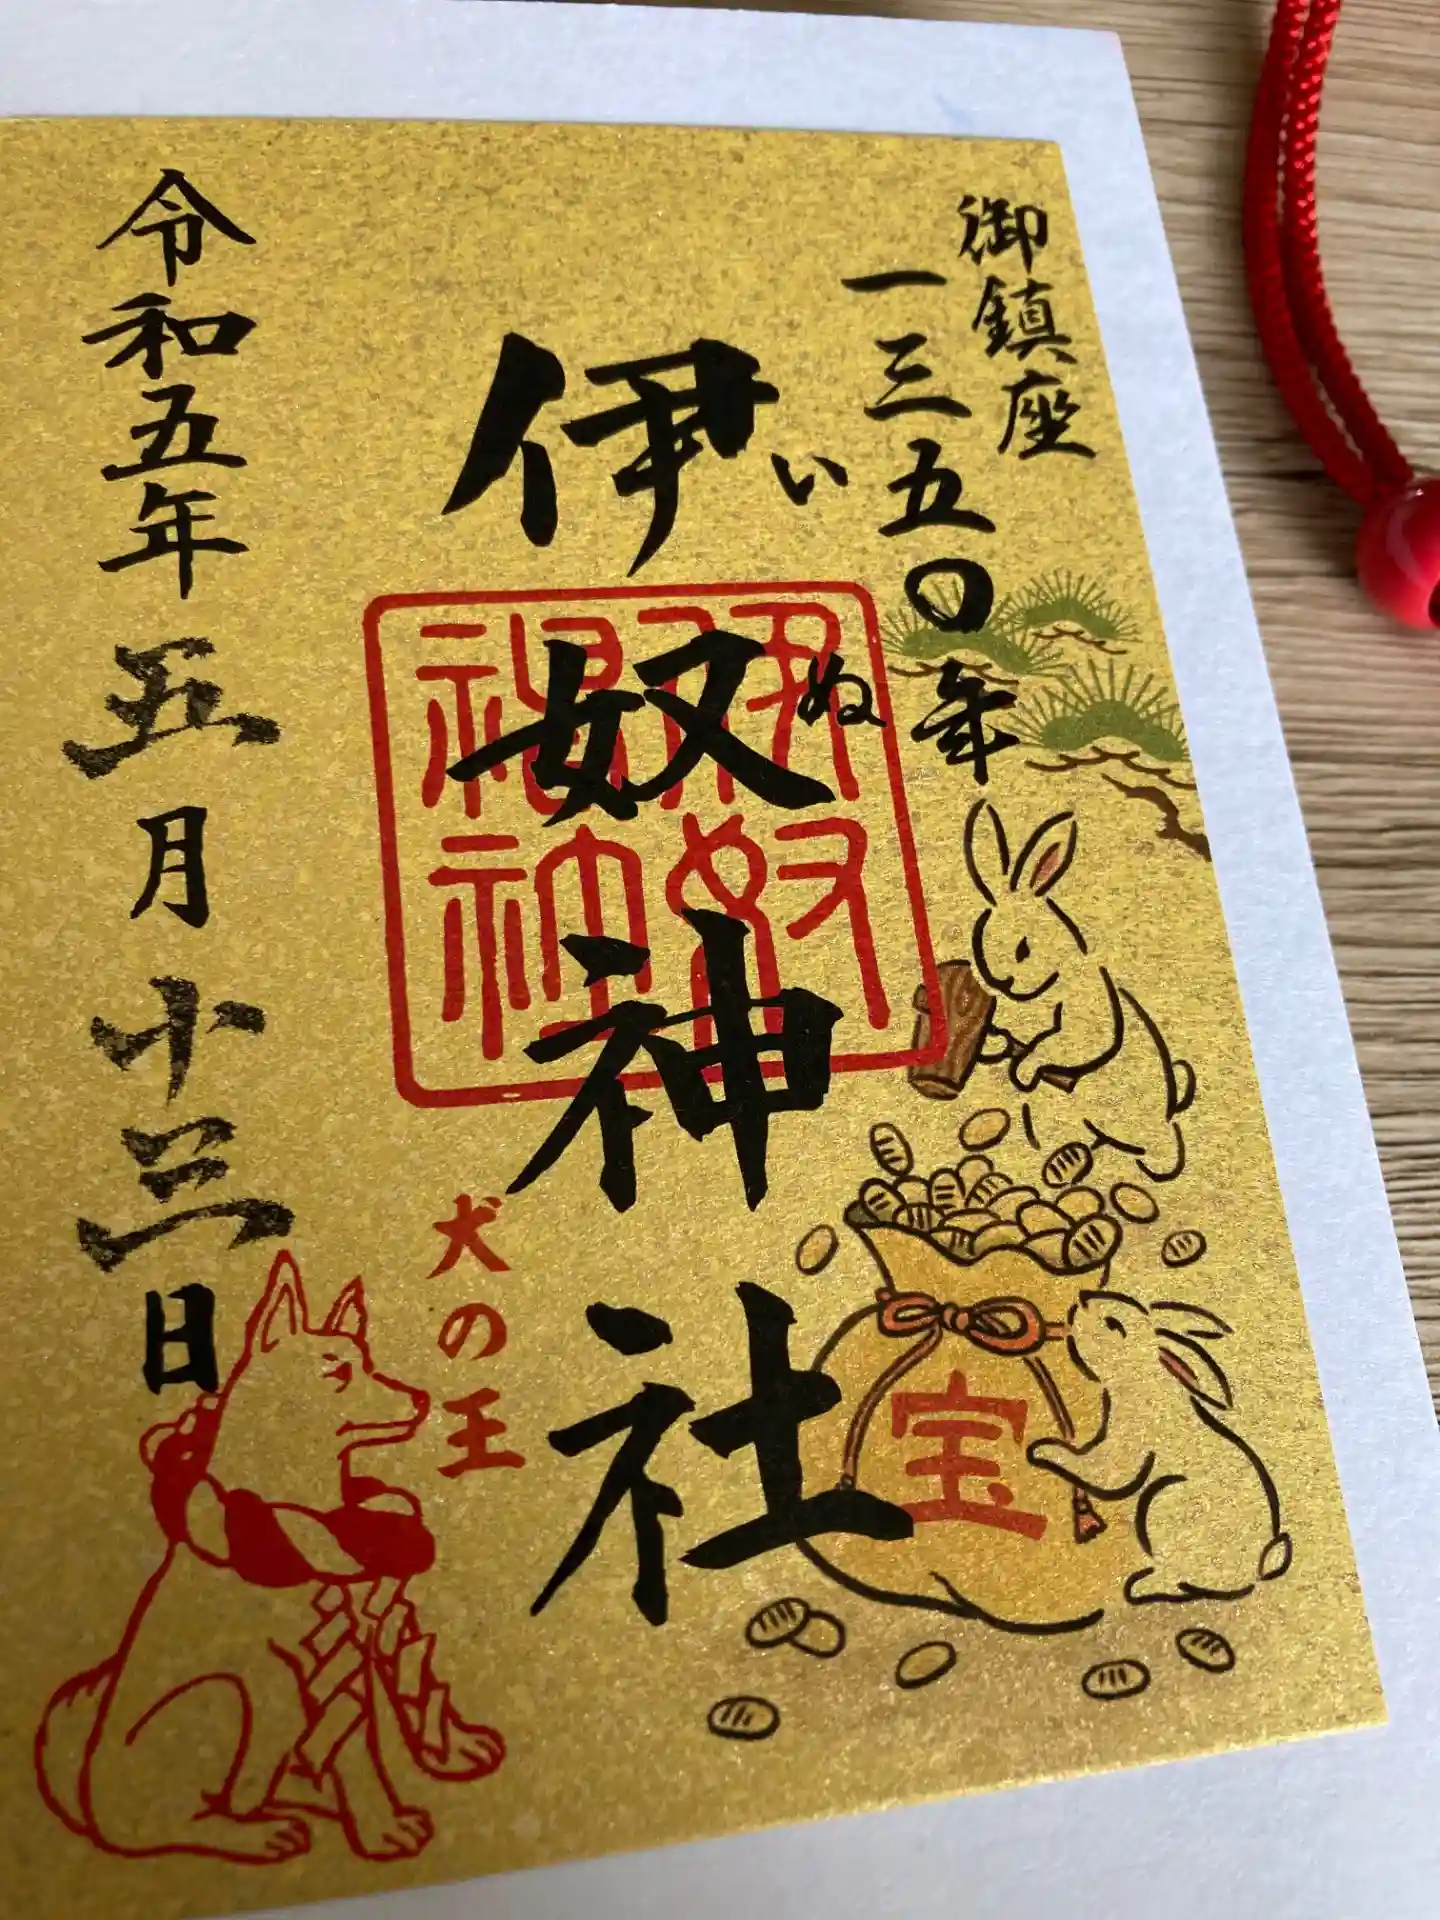 御鎮座
一三五〇年
いぬ
伊奴神社
伊奴神社
宝
犬の王
令和五年五月十三日